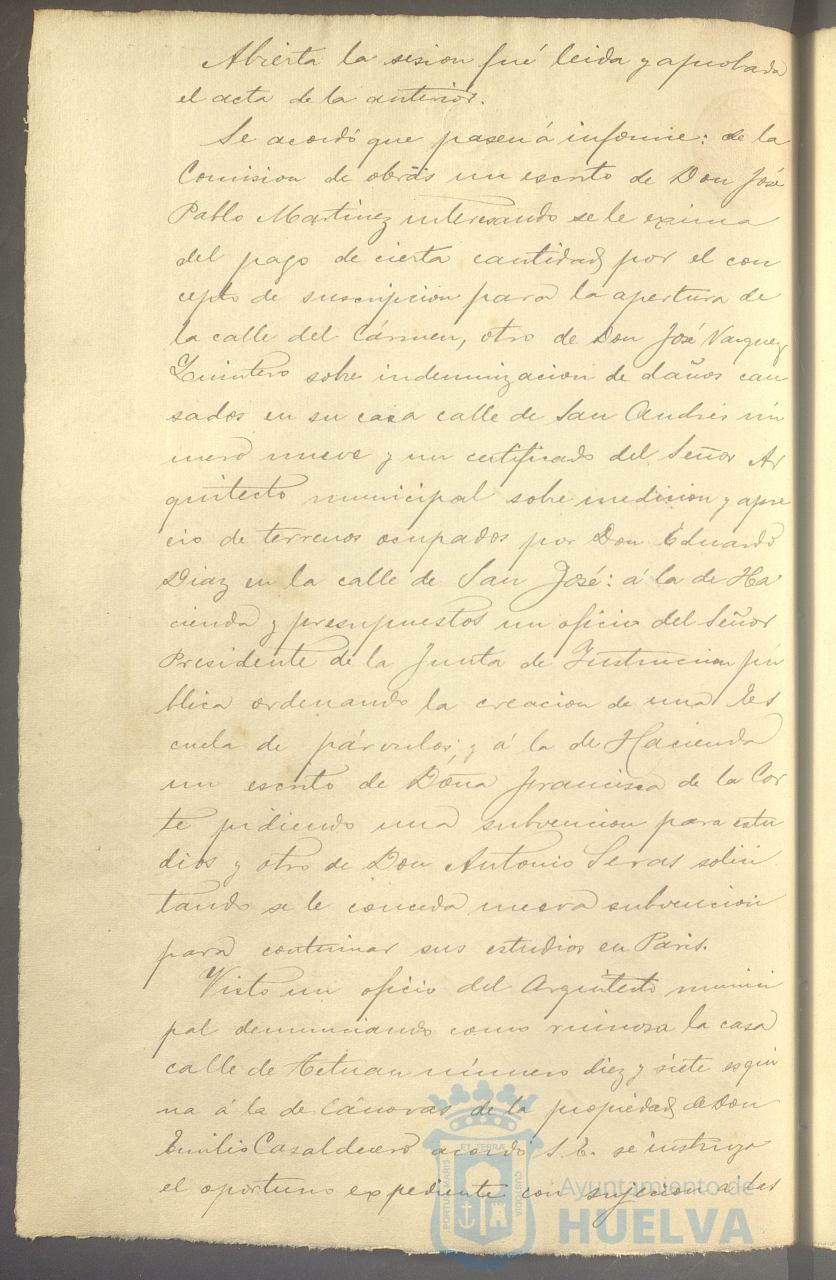 Abierta la sesion fué leida y aprobada
el acta de la anterior.
Se acordó que pasen á informe: de la
Comision de obras un escrito de Don José
Pablo Martinez interesando se le exima
del pago de cierta cantidad por el con
cepto de suscripcion para la apertura de
la calle del Cármen, otro de Don José Vazquez
Quintero sobre indemnizacion de daños cau
sados en su casa calle de San Andrés nú
mero nueve y un certificado del Señor Ar
quitecto municipal sobre medicion y apre
cio de terrenos ocupados por Don Eduardo
Diaz en la calle de San José: á la de Ha
cienda y presupuestos un oficio del Señor
Presidente de la Junta de Instruccion pú
blica ordenando la creacion de una Es
cuela de párvulos; y á la de Hacienda
un escrito de Doña Francisca de la Cor
te pidiendo una subvencion para estu
dios y otro de Don Antonio Seras solici
tando se le conceda nueva subvencion
para continuar sus estudios en Paris.
Visto un oficio del Arquitecto munici
pal denunciando como ruinosa la casa
calle de Tetuan número diez y siete esqui
na á la de Cánovas de la propiedad de Don
Emilio Casalduero acordó S. E. se instruya
el oportuno expediente con sujecion á las
PORTUS MARIS ET TERRAE CUSTODIA
Ayuntamiento de
HUELVA